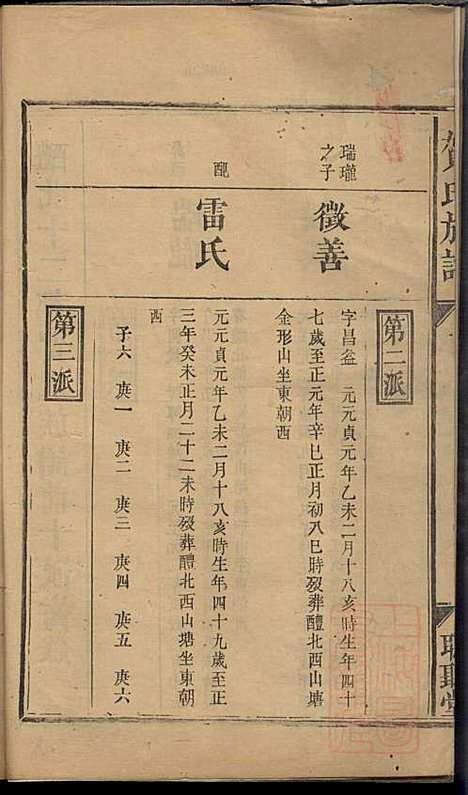 賀氏族譜
聯聽堂
第二派
瑞瓏之子
徵善
字昌益 元元貞元年乙未二月十八亥時生年四十
七歲至正元年辛巳正月初八巳時歿葬醴北西山塘
金形山坐東朝西
配
雷氏
元元貞元年乙未二月十八亥時生年四十九歲至正
三年癸未正月二十二未時歿葬醴北西山塘坐東朝
西
子六 庚一 庚二 庚三 庚四 庚五 庚六
第三派